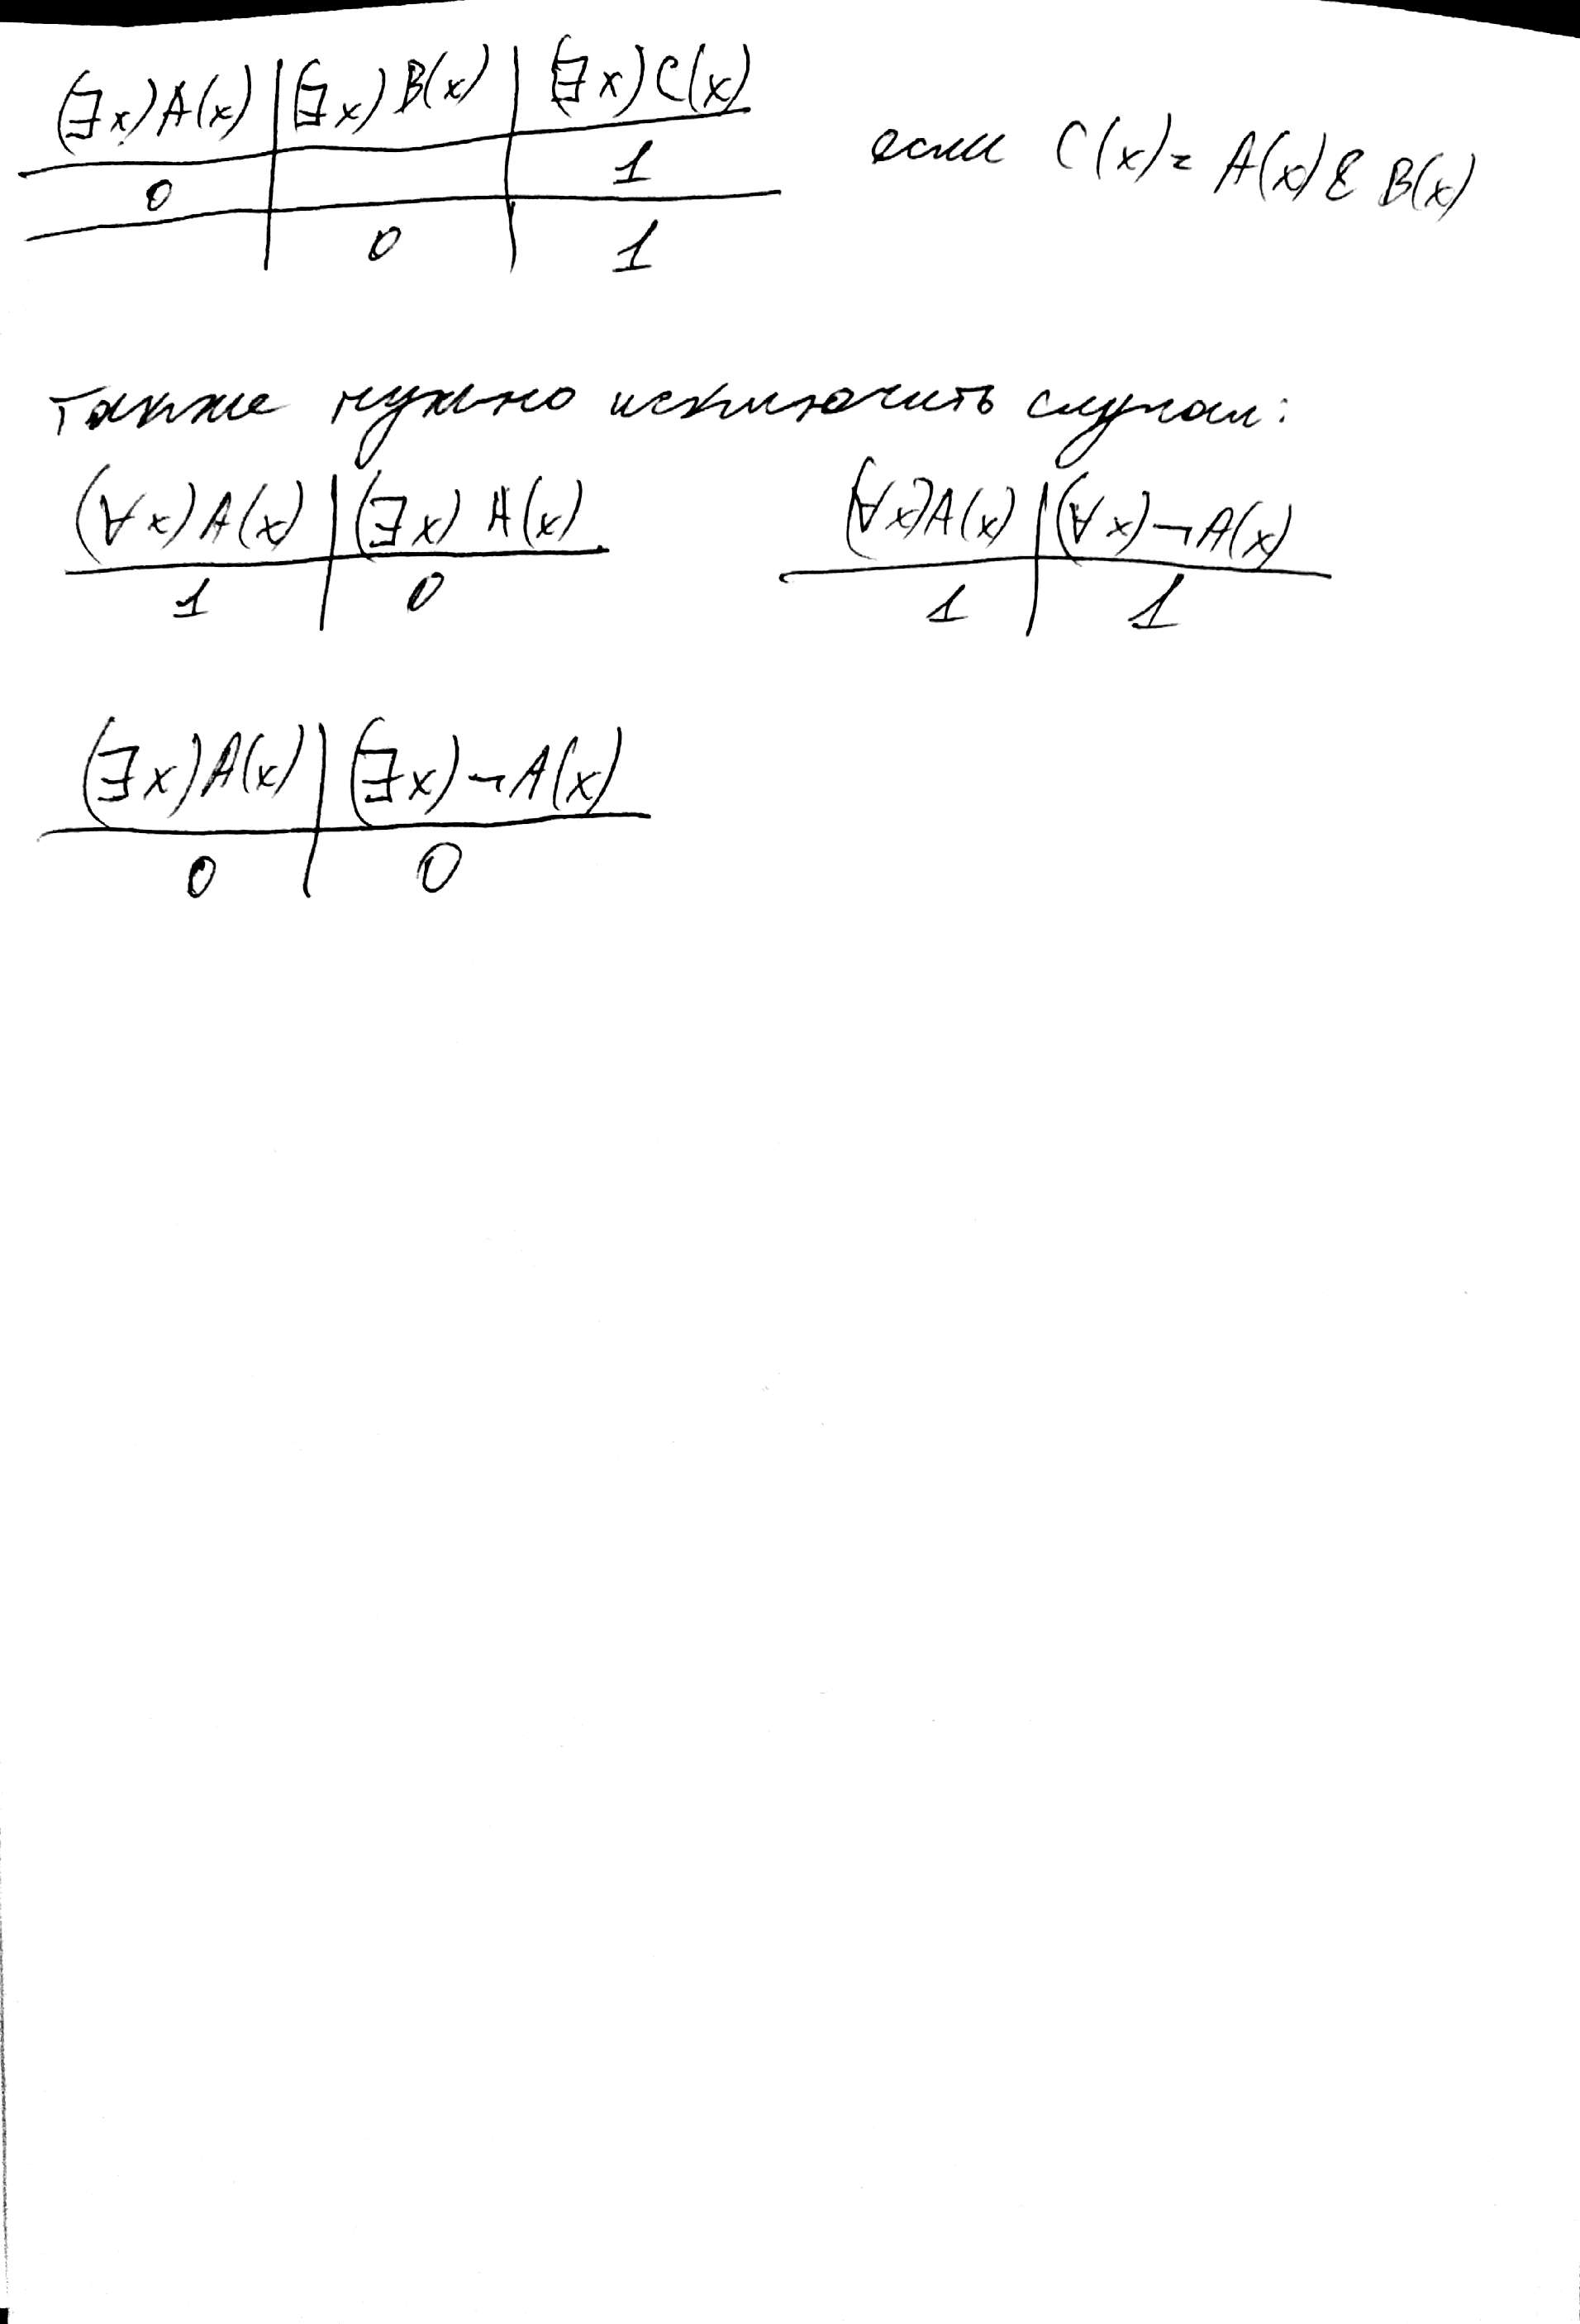 (∃x)A(x) | (∃x)B(x) | (∃x)C(x)
1 если C(x)= A(x)&B(x)
0
0 1
также нужно исключить случаи:
(∀x)A(x) | (∃x)A(x) (∀x)A(x) | (∀x)¬A(x)
1 0 1 1
(∃x)A(x) | (∃x)¬A(x)
0 0